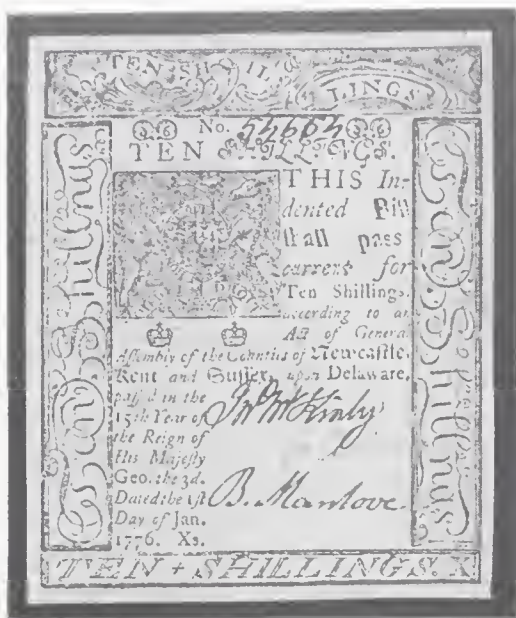 TEN SHIL
LINGS
No. 54664
TEN SHILLINGS.
THIS In-
dented Bill
ſhall paſs
current for
Ten Shillings,
according to an
Act of General
Aſſembly of the Counties of Newcaſtle,
Kent and Suſſex, upon Delaware,
paſs'd in the
15th Year of
the Reign of
His Majeſty
Geo. the 3d.
Dated the 1ſt
Day of Jan.
1776. Xs.
Jno McKinly
B. Manlove.
Ten Shillings
Ten Shillings
TEN + SHILLINGS. X